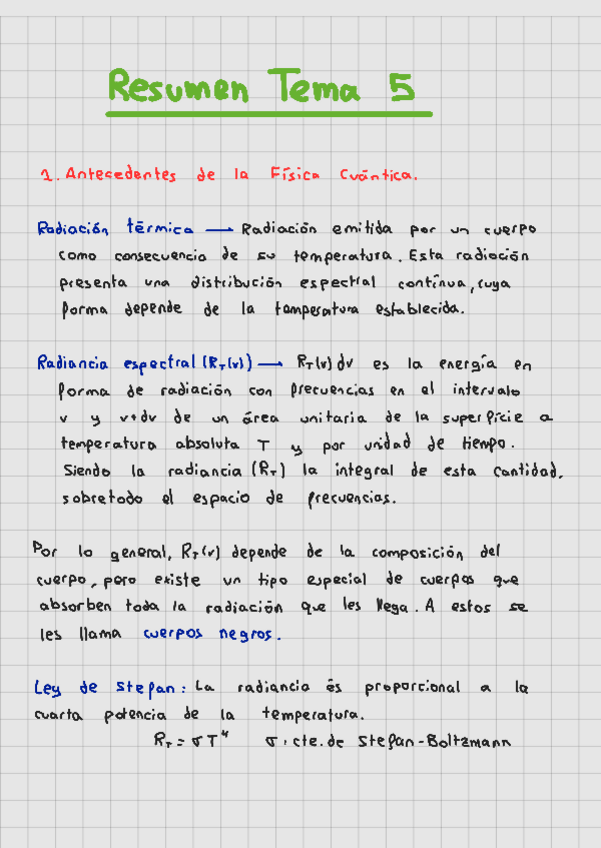 Resumen Tema 5
1. Antecedentes de la Física Cuántica.
Radiación térmica → Radiación emitida por un cuerpo
como consecuencia de su temperatura. Esta radiación
presenta una distribución espectral contínua, cuya
forma depende de la temperatura establecida.
Radiancia espectral (R_T(ν)) → R_T(ν) dν es la energía en
forma de radiación con frecuencias en el intervalo
ν y ν+dν de un área unitaria de la superficie a
temperatura absoluta T y por unidad de tiempo.
Siendo la radiancia (R_T) la integral de esta cantidad,
sobretodo el espacio de frecuencias.
Por lo general, R_T(ν) depende de la composición del
cuerpo, pero existe un tipo especial de cuerpos que
absorben toda la radiación que les llega. A estos se
les llama cuerpos negros.
Ley de Stefan: La radiancia es proporcional a la
cuarta potencia de la temperatura.
R_T = σT⁴ σ: cte. de Stefan-Boltzmann